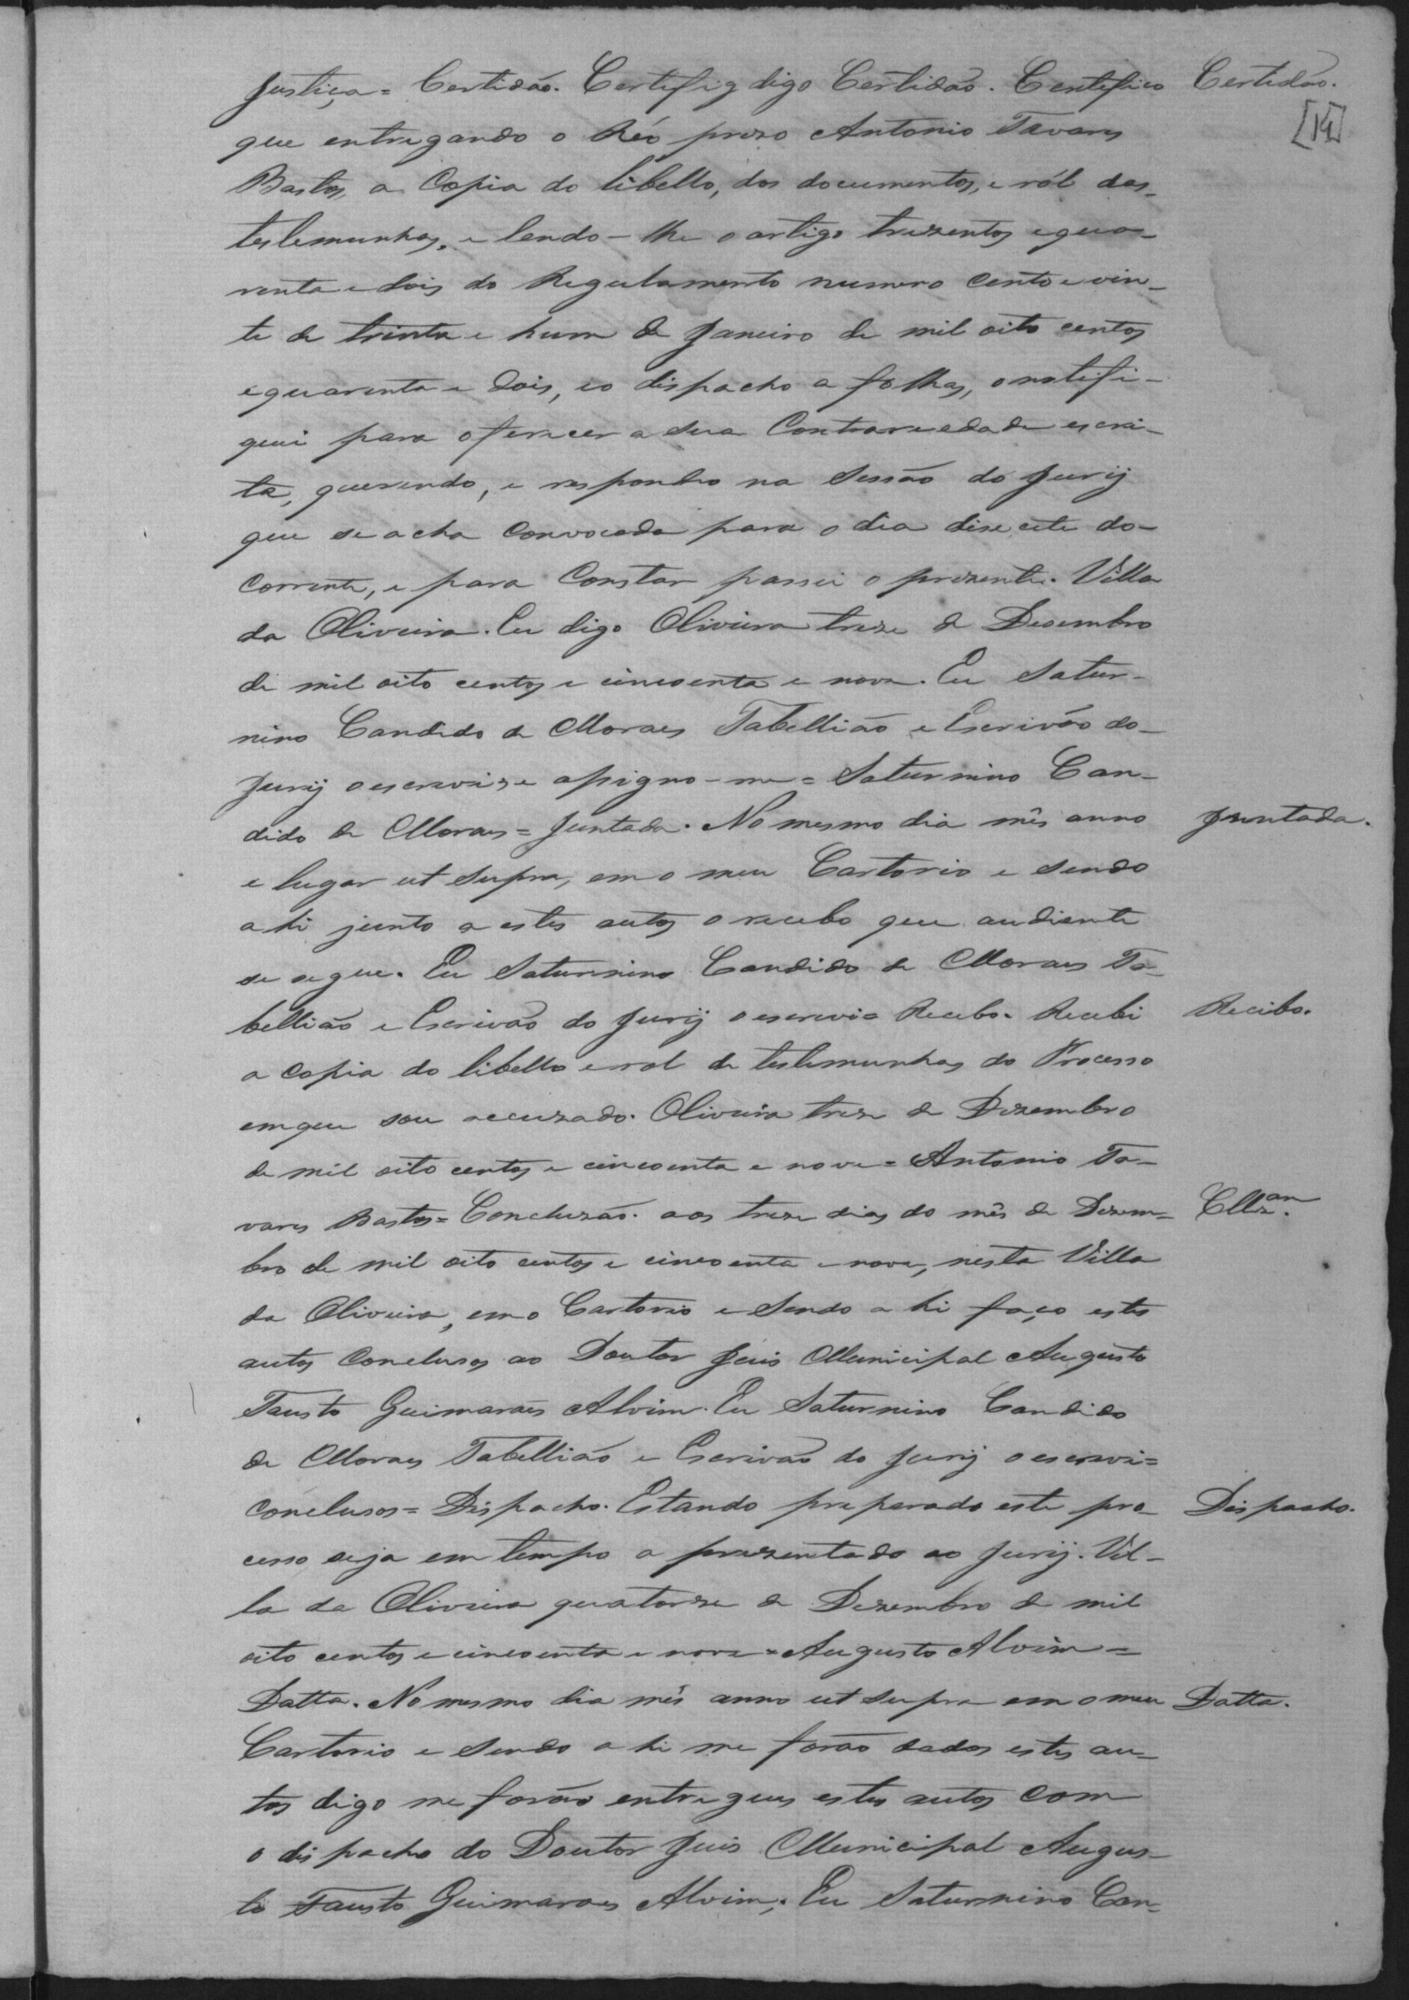 Justiça = Certidão. Certefiq digo Certidão. Certefico Certidão.
[14]
que entregando o Réo prezo Antonio Tavares
Bastos, a Copia do libello, dos documentos, e ról das
testemunhas, e lendo-lhe o artigo trezentos e qua-
renta e dois do Regulamento numero cento e vin-
te de trinta e hum de Janeiro de mil oito centos
e quarenta e dois, e o dispacho a folhas, o notifi-
quei para oferecer a sua Contrariedade escri-
ta, querendo, e responder na Sessão do Jurij
que se acha Convocada para o dia dise cete do
Corrente, e para Constar passei o prezente. Villa
da Oliveira. Eu digo Oliveira treze de Desembro
de mil oito centos e cincoenta e nove. Eu Satur-
nino Candido de Moraes Tabellião e Escrivão do
Jurij o escrevi e assigno-me = Saturnino Can-
dido de Moraes = Juntada. No mesmo dia mês anno Juntada.
e lugar ut supra, em o meu Cartorio e sendo
ahi junto a estes autos o recebo que andiente
se segue. Eu Saturnino Candido de Moraes Ta-
bellião e Escrivão do Jurij o escrevi = Recebo. Recebi Recibo.
a copia do libello e rol de testemunhas do Processo
em que sou accuzado. Oliveira treze de Dezembro
de mil oito centos e cincoenta e nove = Antonio Ta-
vares Bastos = Concluzão. aos treze dias do mês de Dezem- Cllz.am
bro de mil oito centos e cincoenta e nove, nesta Villa
da Oliveira, em o Cartorio e Sendo ahi faço estes
autos Conclusos ao Doutor Juis Municipal Augusto
Fausto Guimarães Alvim. Eu Saturnino Candido
de Moraes Tabellião e Escrivão do Jurij o escrevi =
Conclusos = Dispacho. Estando preparado este pro- Dispacho.
cesso seja em tempo aprezentado ao Jurij. Vil-
la da Oliveira quatorze de Dezembro de mil
oito centos e cincoenta e nove = Augusto Alvim =
Datta. No mesmo dia mês anno ut supra em o meu Datta.
Cartorio e Sendo ahi me forão dados estes au-
tos digo me forão entregues estes autos com
o dispacho do Doutor Juis Municipal Augus-
to Fausto Guimarães Alvim,. Eu Saturnino Can-